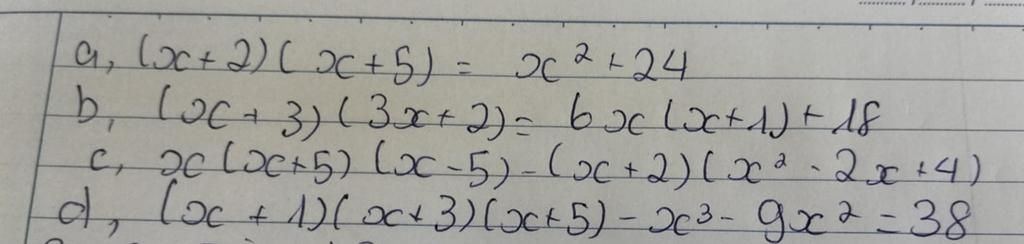 a, (x+2)(x+5) = x² + 24
b, (x + 3)(3x+2) = 6x(x+1) + 18
c, x(x+5)(x-5) - (x+2)(x² - 2x +4)
d, (x + 1)(x+3)(x+5) - x³ - 9x² = 38